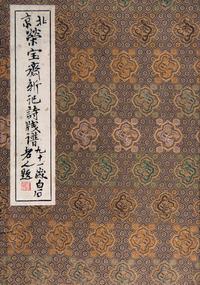 北京
榮宝齋新記詩牋譜
九十一歲白石
老人題